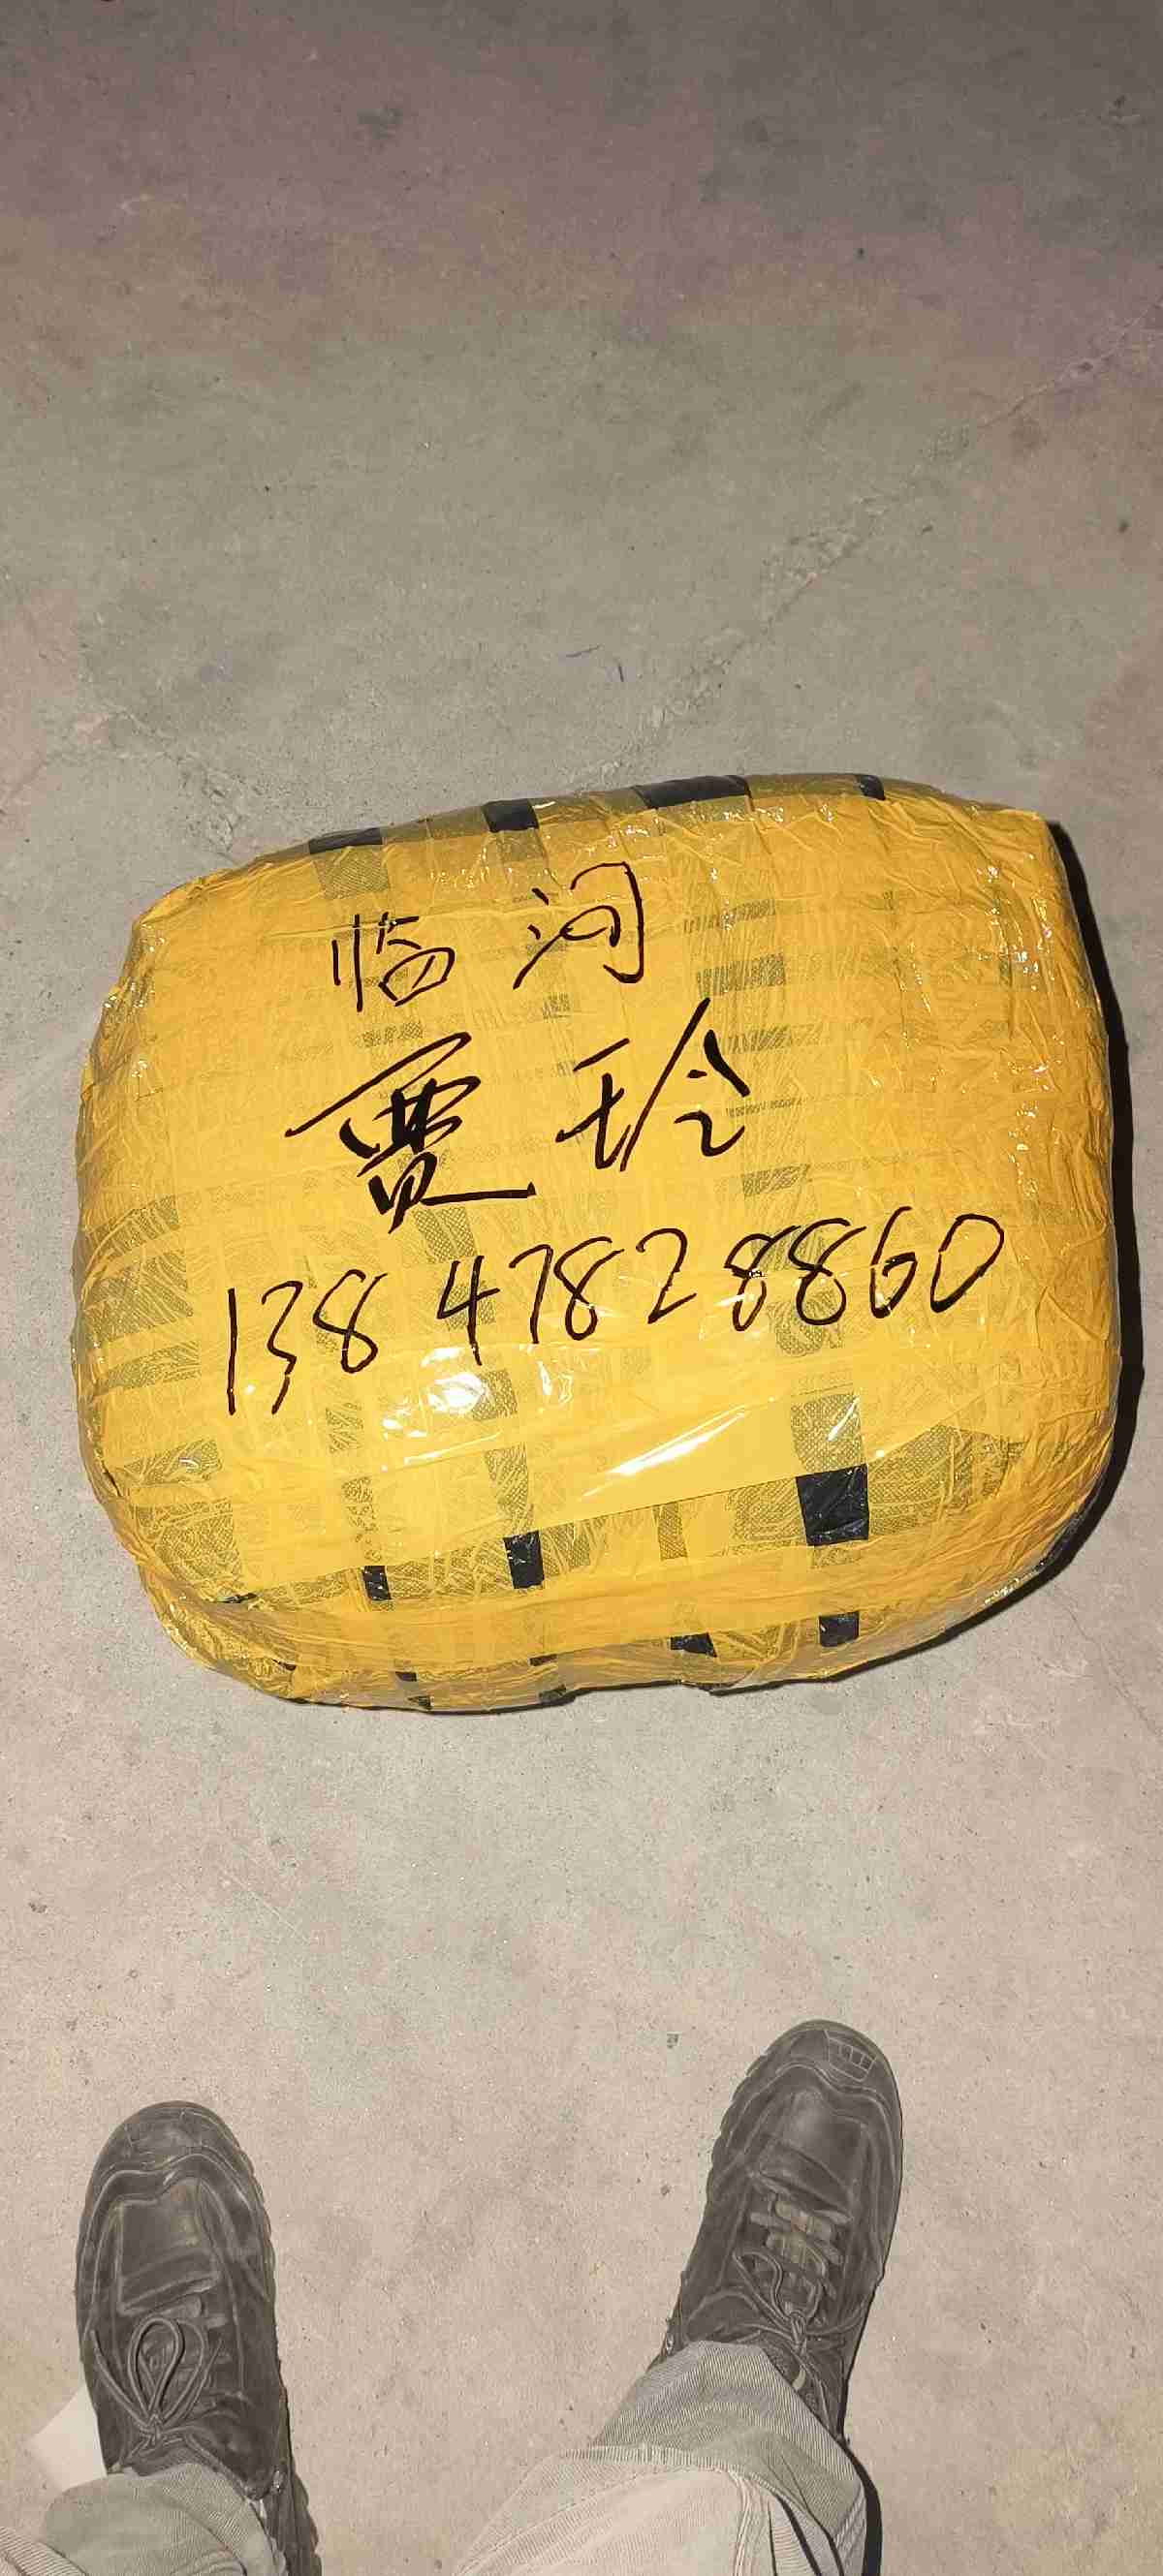 临河
贾玲
13847828860